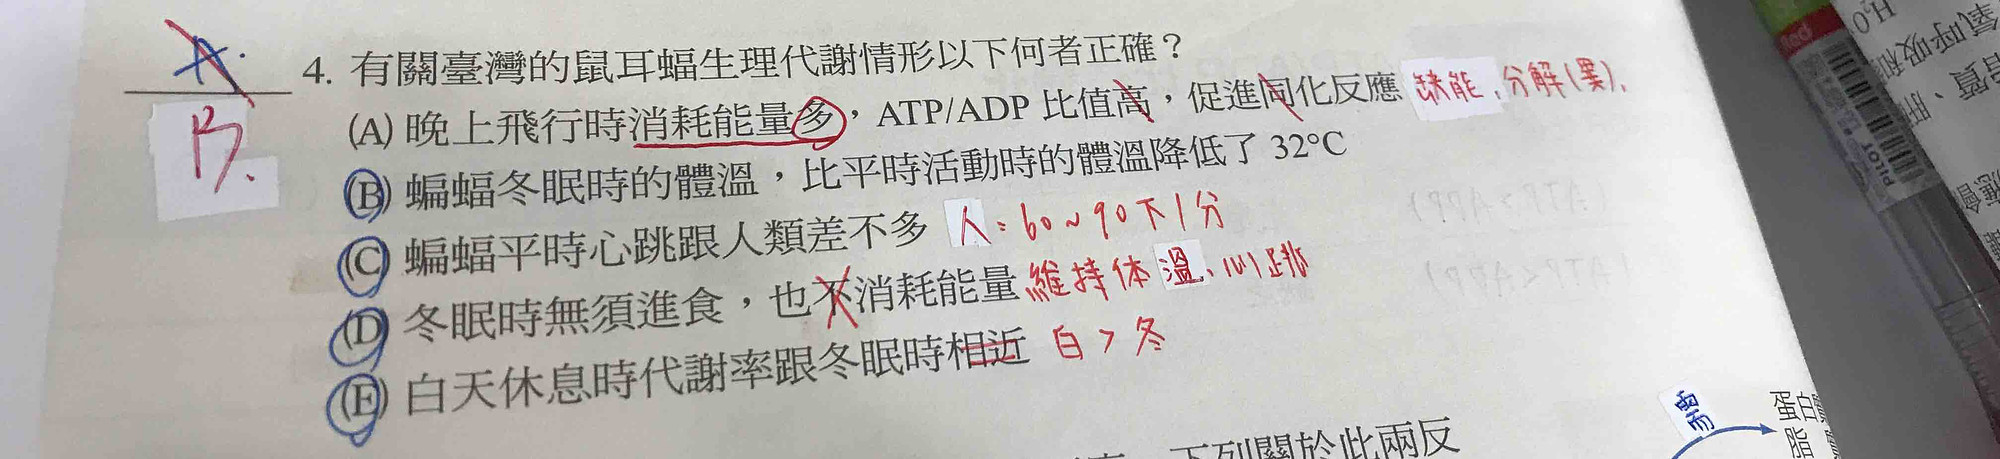 A.
B.
4. 有關臺灣的鼠耳蝠生理代謝情形以下何者正確？
(A) 晚上飛行時消耗能量多，ATP/ADP 比值高，促進同化反應 缺能、分解(異)、
(B) 蝙蝠冬眠時的體溫，比平時活動時的體溫降低了 32°C
(C) 蝙蝠平時心跳跟人類差不多 人：60~90下/分
(D) 冬眠時無須進食，也不消耗能量 維持体溫、心跳
(E) 白天休息時代謝率跟冬眠時相近 白>冬
下列關於此兩反
需
蛋白
脂
H₂O
氧呼吸和
Red
PILOT